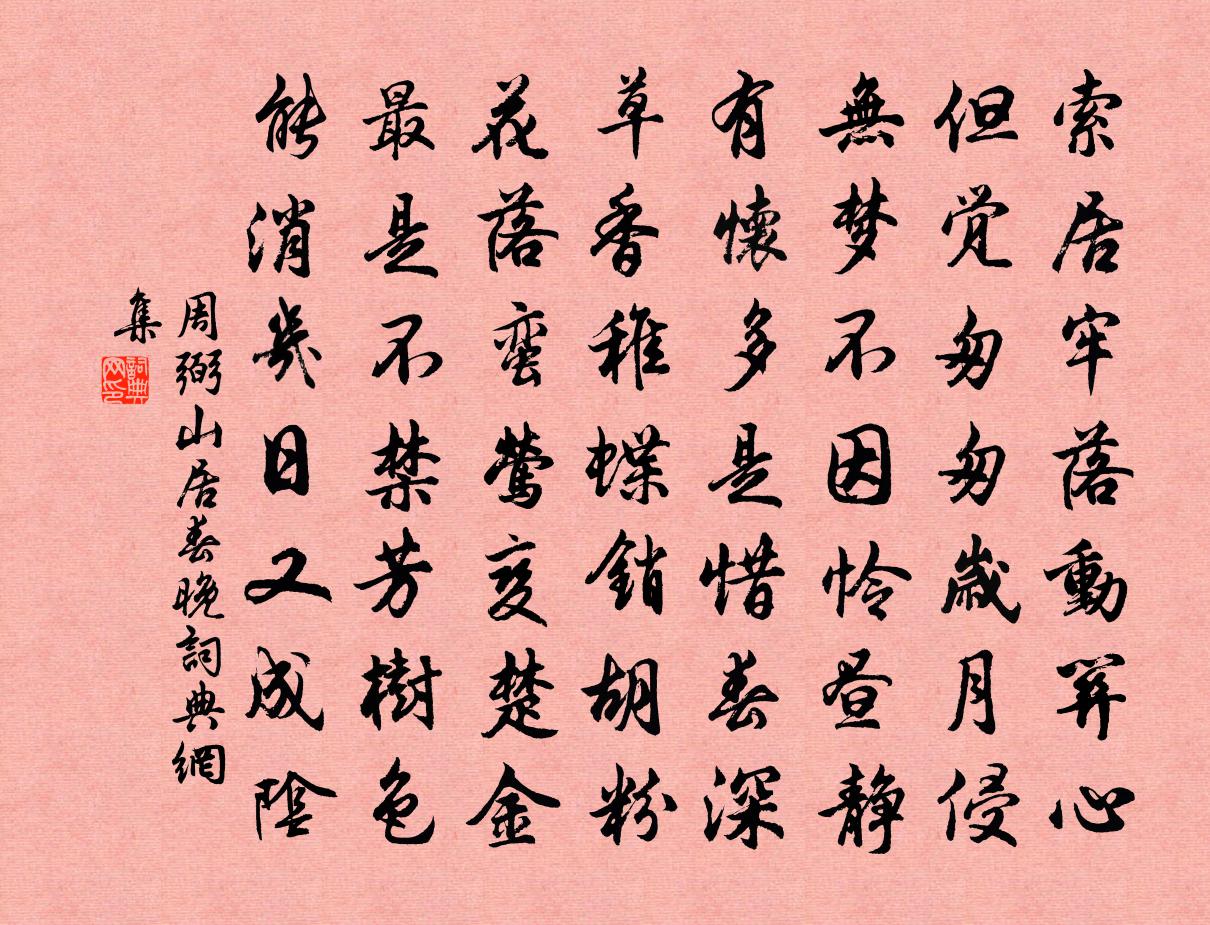 索居牢落動羇心
但觉匆匆歲月侵
無梦不因怜昼静
有懷多是惜春深
草香稚蝶銷胡粉
花落蛮鶯变楚金
最是不禁芳樹色
能消幾日又成陰
周弼山居春晚詞典網
集
詞典网印